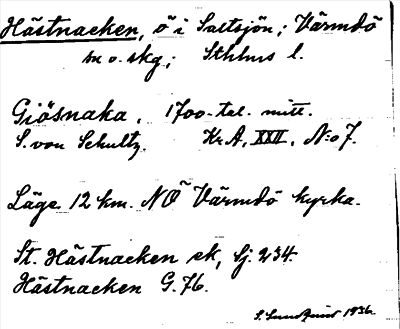 Hästnacken, ö i Saltsjön; Värmdö
sn o. skg; Sthlms l.
Giösnaka, 1700-tal. mitt.
S. von Schultz. Kr.A, XXII, N:o 7.
Läge 12 km. NO Värmdö kyrka.
St. Hästnacken ek, Gj. 234.
Hästnacken G. 76.
S. 1936.